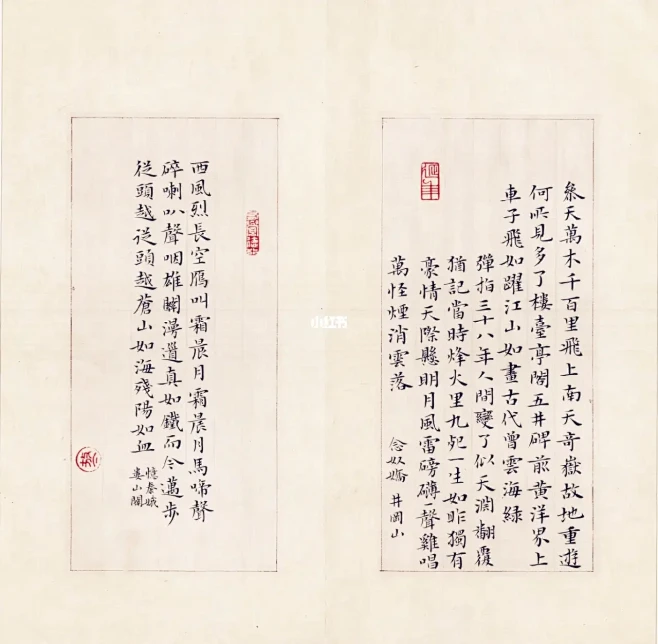 參天萬木千百里飛上南天奇嶽故地重遊
何所見多了樓臺亭閣五井碑前黃洋界上
車子飛如躍江山如畫古代曾雲海綠
彈指三十八年人間變了似天淵翻覆
猶記當時烽火里九死一生如昨獨有
豪情天際懸明月風雷磅礴聲雞唱
萬怪煙消雲落
念奴嬌 井岡山
西風烈長空雁叫霜晨月霜晨月馬啼聲
碎喇叭聲咽雄關漫道真如鐵而今邁步
從頭越從頭越蒼山如海殘陽如血
憶秦娥
婁山關
小红书